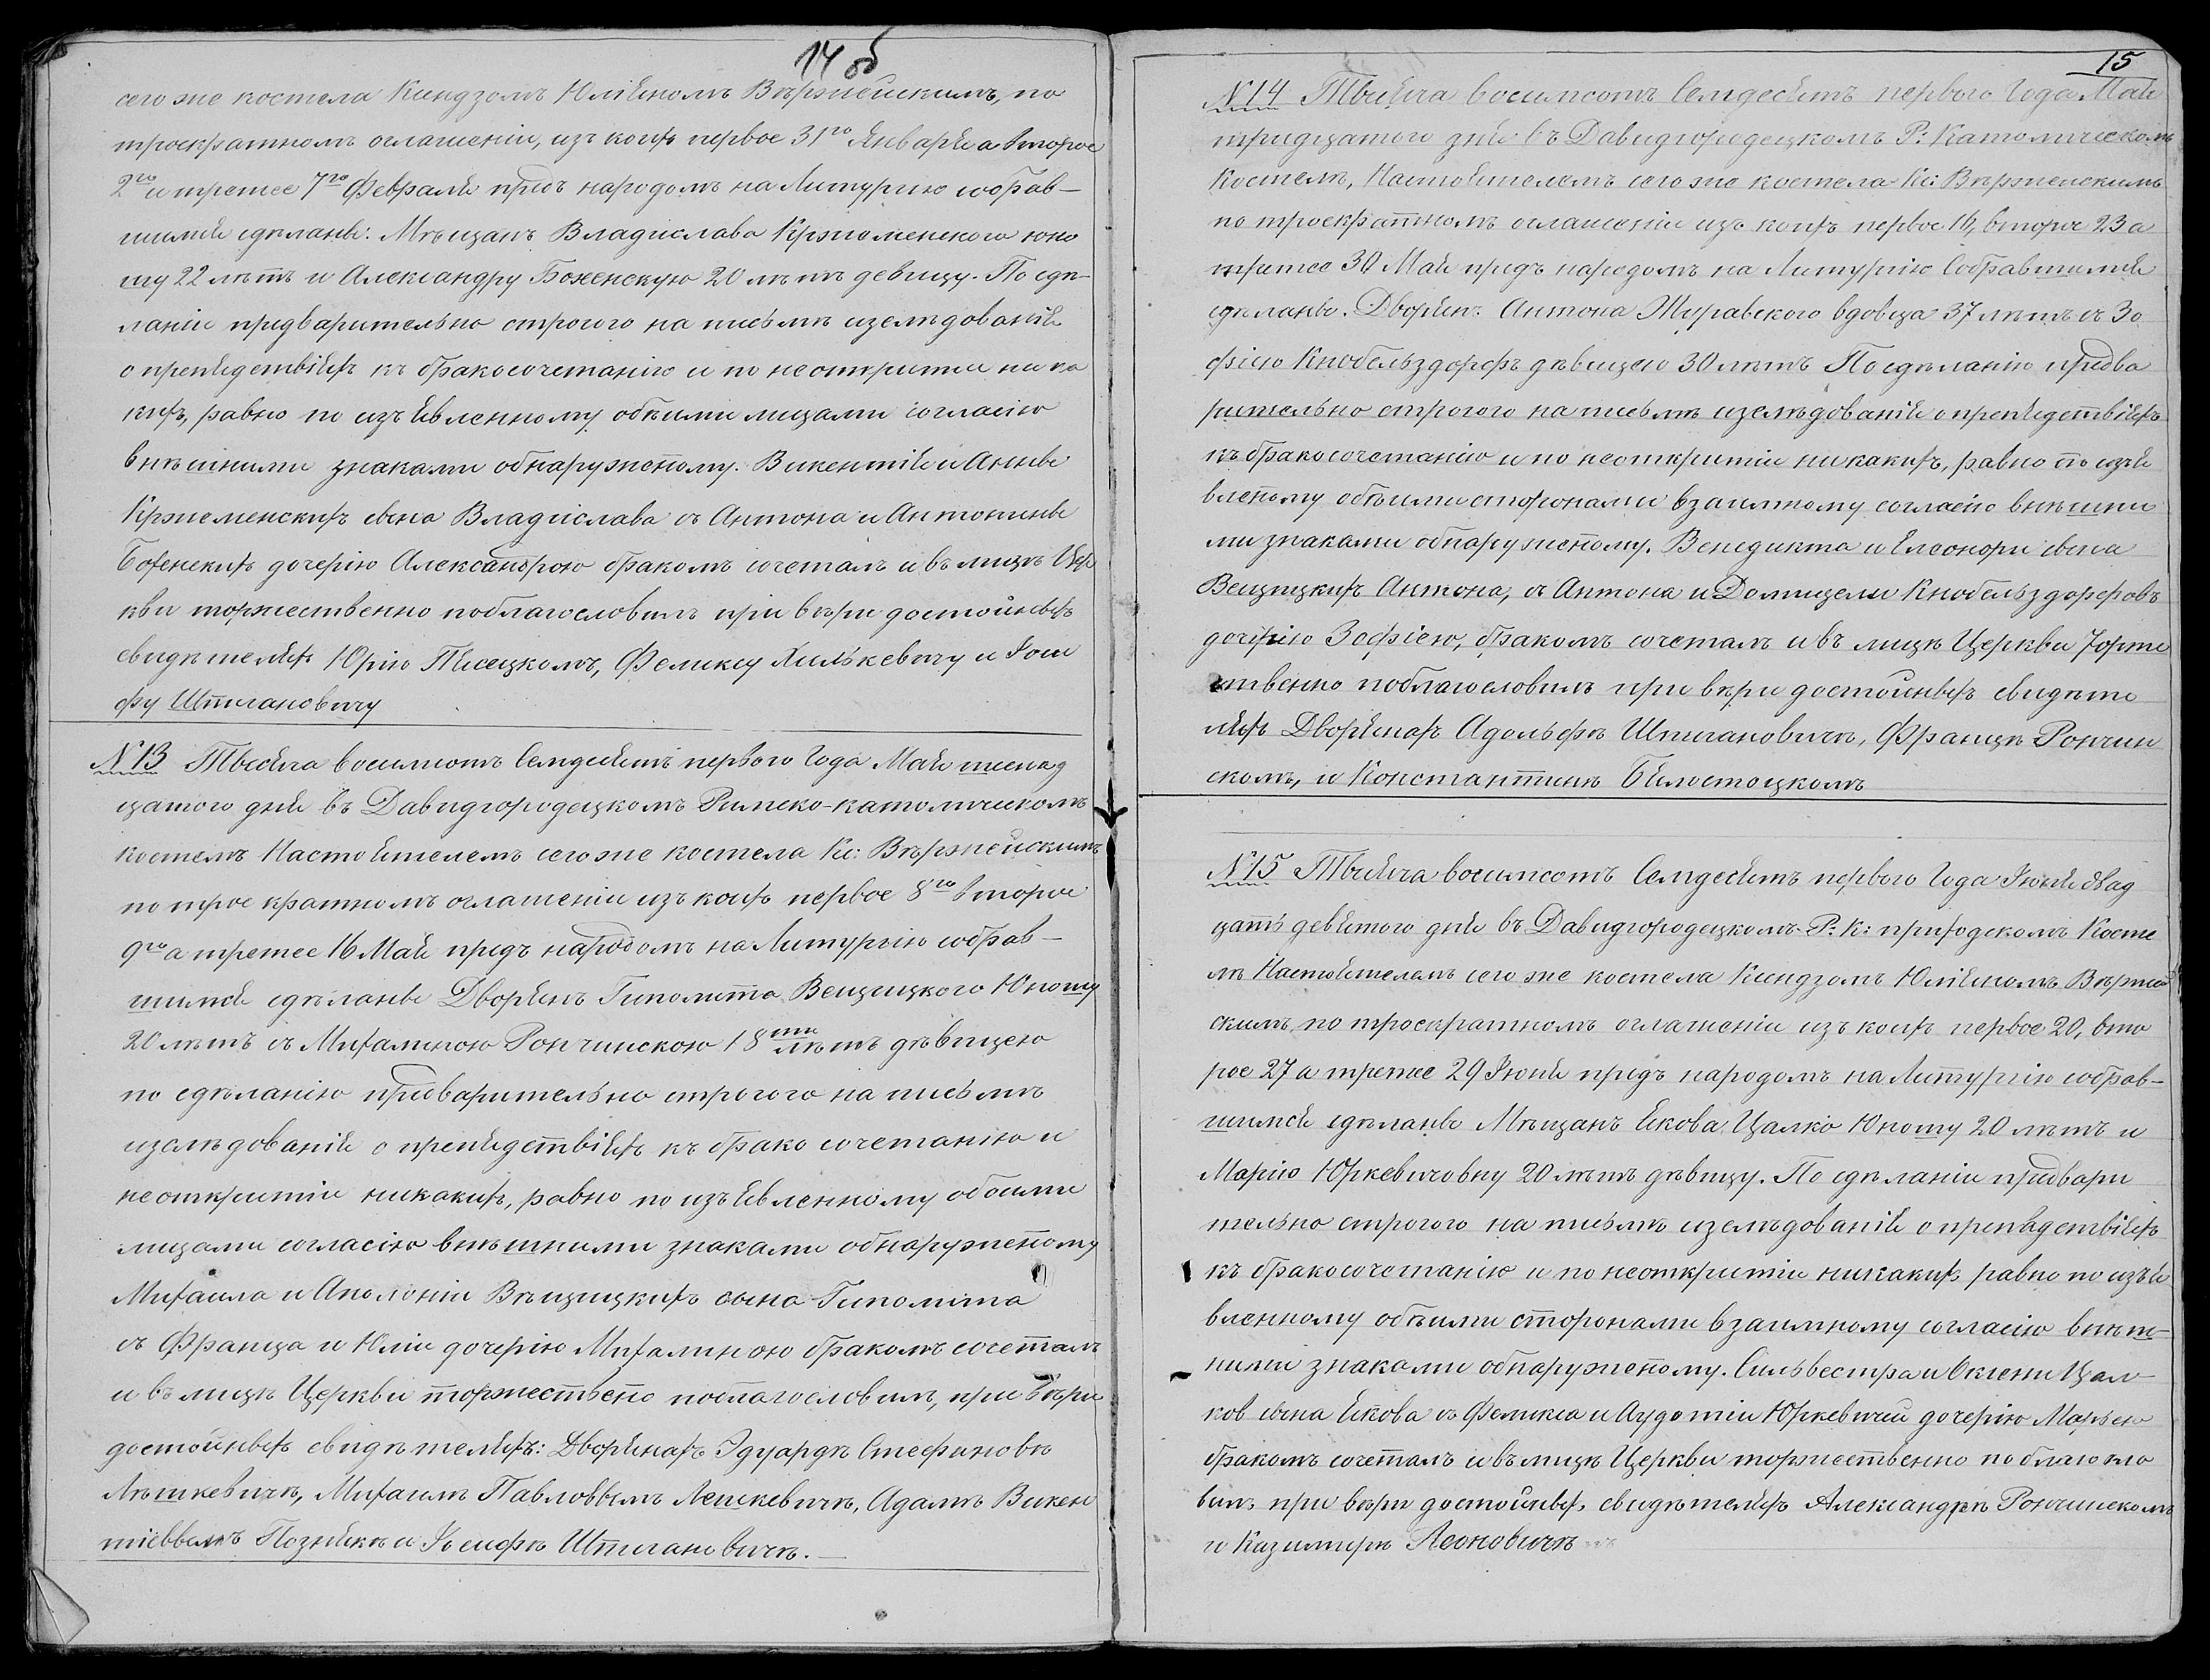 14 об
сего же костела Ксиндзомъ Юлiяномъ Вѣржейскимъ, по
троекратномъ оглашенiи, изъ коихъ первое 31го Января а второе
2го и третее 7го Февраля предъ народомъ на Литургiю собрав-
шимся сдѣланы: Мѣщанъ Владислава Кржеменского юно
шу 22 лѣтъ и Александру Боженскую 20 лѣтъ девицу. По сдѣ-
ланiи предварительно строгого на письмѣ изслѣдованiя
о препядствiяхъ къ бракосочетанiю и по неоткритiи ника
кихъ, равно по изъявленному обѣими лицами согласiю
внѣшними знаками обнаруженому. Викентiя и Анны
Кржеменскихъ сына Владислава съ Антона и Антонины
Боженскихъ дочерiю Александрою бракомъ сочеталъ и въ лицѣ Цер
кви торжественно поблагословилъ при вѣри достойныхъ
свидѣтеляхъ Юрiю Писецкомъ, Феликсу Хилькевичу и Iоси
фу Штигановичу
№ 13 Тысяча восимсотъ Семдесятъ первого Года Мая шеснад
цатого дня въ Давидгородецкомъ Римско-католическомъ
костелѣ Настоятелемъ сего же костела Кс: Вѣржейскимъ
по трое кратномъ оглашенiи изъ коихъ первое 8го второе
9го а третее 16 Мая предъ народомъ на Литургiю собрав-
шимся сдѣланы Дворянъ Гиполита Вещицкого Юношу
20 лѣтъ съ Михалиною Рончинскою 18ти лѣтъ дѣвицею
по сдѣланiю предварительно строгого на письмѣ
изслѣдованiя о препядствiяхъ къ брако сочетанiю и
неоткритiи никакихъ, равно по изъявленному обоими
лицами согласiю внѣшними знаками обнаруженому
Михаила и Аполонiи Вѣщицкихъ сына Гиполита
съ Франца и Юлiи дочерiю Михалиною бракомъ сочеталъ
и въ лицѣ Церкви торжествено поблагословилъ, при вѣри
достойныхъ свидѣтеляхъ: Дворянахъ Эдуардѣ Стефановѣ
Лѣшкевичѣ, Михаилѣ Павловымъ Лешкевичѣ, Адамѣ Викен
тiеввымъ Познякѣ и Iосифѣ Штигановичѣ.
15
№ 14 Тысяча восимсотъ Семдесятъ первого Года Мая
тридцатого дня въ Давидгородецкомъ Р: Католическомъ
Костелѣ, Настоятелемъ сего же костела Кс: Вѣржейскимъ
по троекратномъ оглашенiи изъ коихъ первое 16, второе 23 а
третее 30 Мая предъ народомъ на Литургiю Собравшимся
сдѣланы. Дворян: Антона Журавского вдовца 37 лѣтъ съ Зо
фiею Кнобельздорфъ дѣвицею 30 лѣтъ По сдѣланiю предва
рительно строгого на письмѣ изслѣдованiя о препядствiяхъ
къ бракосочетанiю и по неоткритiи никакихъ, равно по изъя
вленому обѣими сторонами взаимному согласiю внѣшни
ми знаками обнаруженому. Венедикта и Елеонори сына
Вещицкихъ Антона, съ Антона и Домицели Кнобельздорфовъ
дочерiю Зофiею, бракомъ сочеталъ и въ лицѣ Церкви Торже
ственно поблагословилъ при вѣри достойныхъ свидѣте
ляхъ Дворянахъ Адольфѣ Штигановичѣ, Францѣ Рончин
скомъ, и Константинѣ Бялостоцкомъ
№ 15 Тысяча восимсотъ Семдесятъ первого Года Iюня двад
цать девятого дня въ Давидгородецкомъ Р: К: приходскомъ Косте
лѣ Настоятелемъ сего же костела Ксиндзомъ Юлiяномъ Вѣржей
скимъ, по троекратномъ оглашенiи изъ коихъ первое 20, вто
рое 27 а третее 29 Iюня предъ народомъ на Литургiю собрав-
шимся сдѣланы Мѣщанъ Якова Цалко Юношу 20 лѣтъ и
Марiю Юркевичовну 20 лѣтъ дѣвицу. По сдѣланiи предвари
тельно строгого на письмѣ изслѣдованiя о препядствiяхъ
къ бракосочетанiю и по неоткритiи никакихъ равно по изъя
вленному обѣими сторонами взаимному согласiю внѣш-
ними знаками обнаруженому. Сильвестра и Оксени Цал-
ков сына Якова съ Феликса и Аудотiи Юркевичей дочерiю Марьею
бракомъ сочеталъ и въ лицѣ Церкви торжественно поблагосло
вилъ при вѣри достойныхъ свидѣтеляхъ Александрѣ Рончинскомъ
и Казимирѣ Леоновичѣ